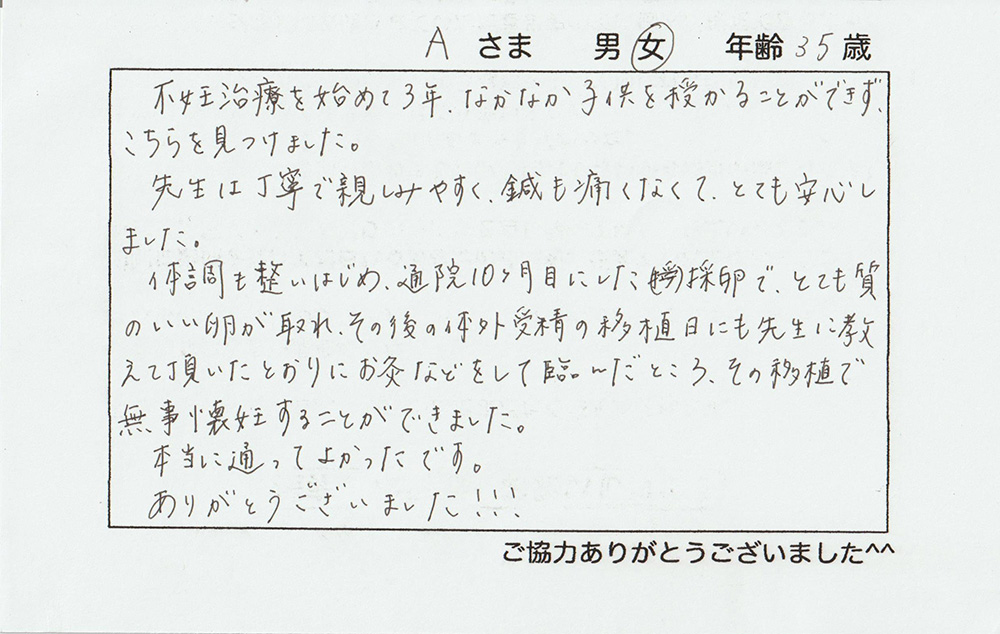 A さま 男 女 年齢 35 歳
不妊治療を始めて3年、なかなか子供を授かることができず、
こちらを見つけました。
先生は丁寧で親しみやすく、鍼も痛くなくて、とても安心し
ました。
体調も整いはじめ、通院10ヶ月目にした採卵で、とても質
のいい卵が取れ、その後の体外受精の移植日にも先生に教
えて頂いたとおりにお灸などをして臨んだところ、その移植で
無事懐妊することができました。
本当に通ってよかったです。
ありがとうございました!!!
ご協力ありがとうございました^^